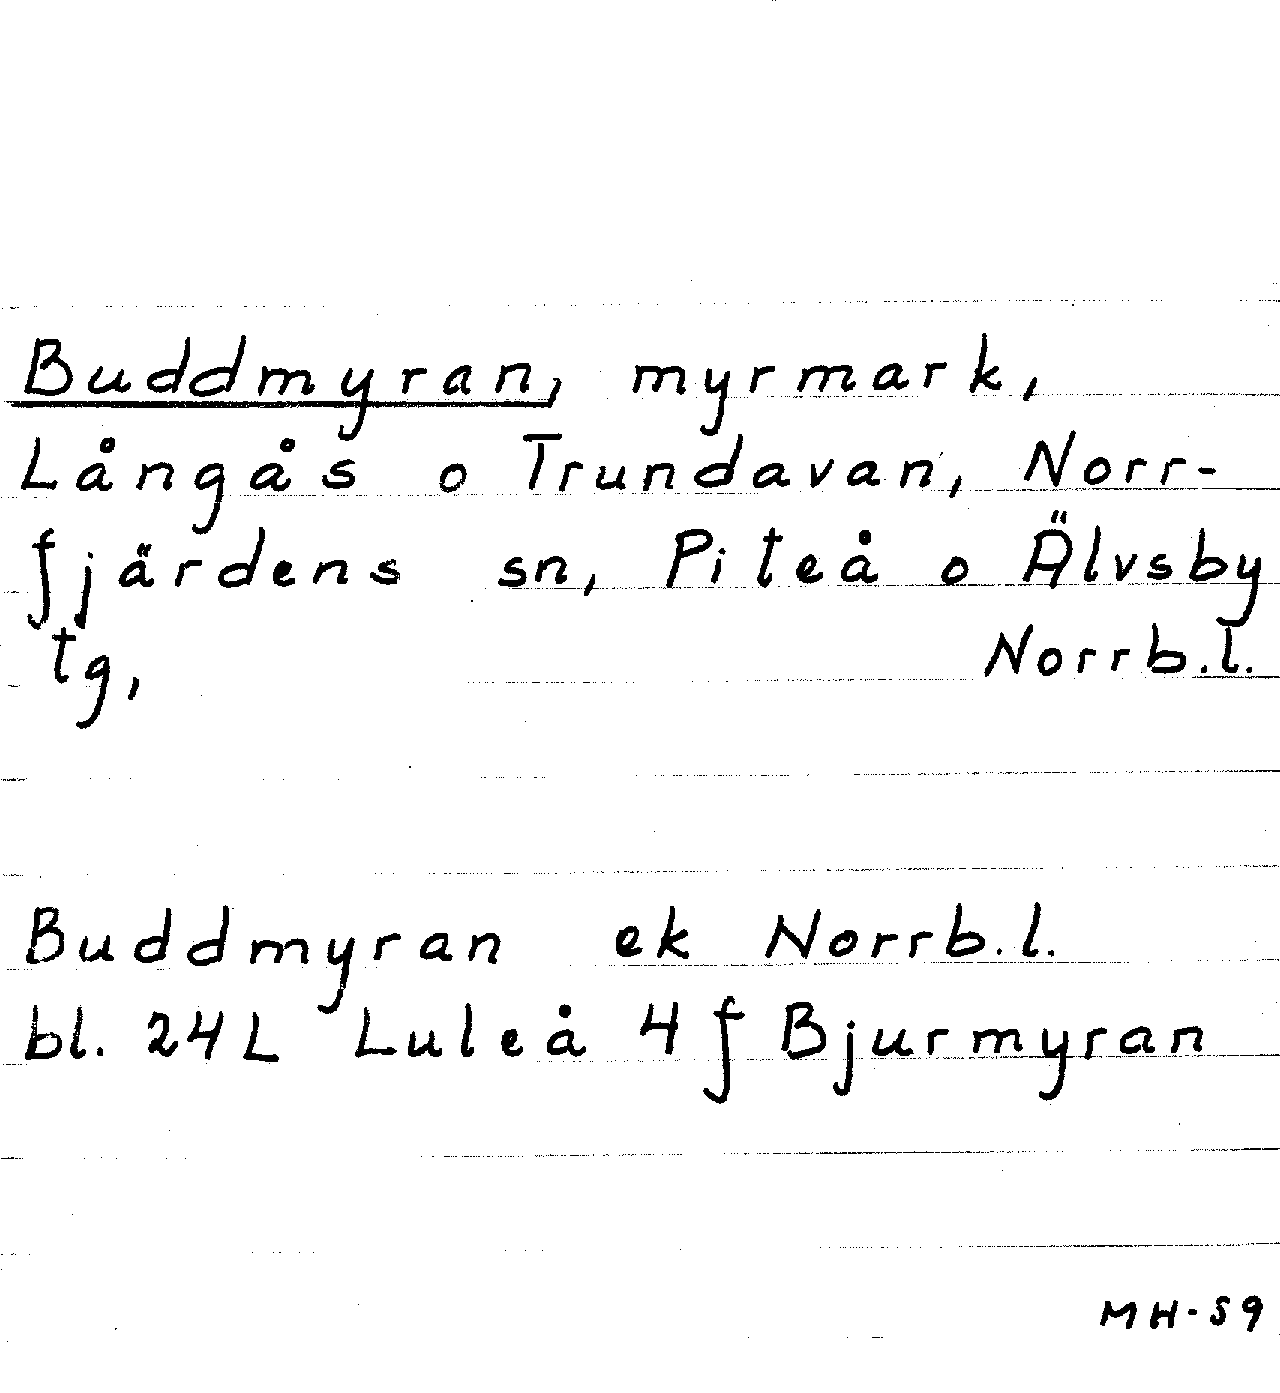 Buddmyran, myrmark,
Långås o Trundavan, Norr-
fjärdens sn, Piteå o Älvsby
tg, Norrb.l.
Buddmyran ek Norrb.l.
bl. 24L Luleå 4f Bjurmyran
MH-59